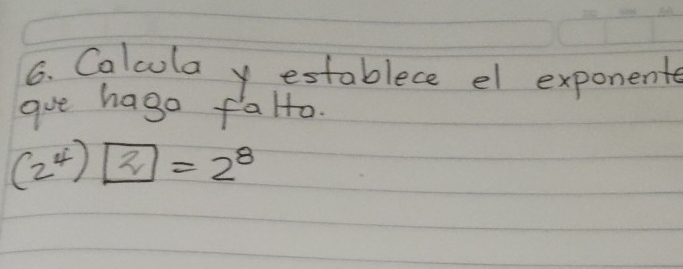 6. Calcula y establece el exponente
que haga falta.
(2⁴) 2 = 2⁸